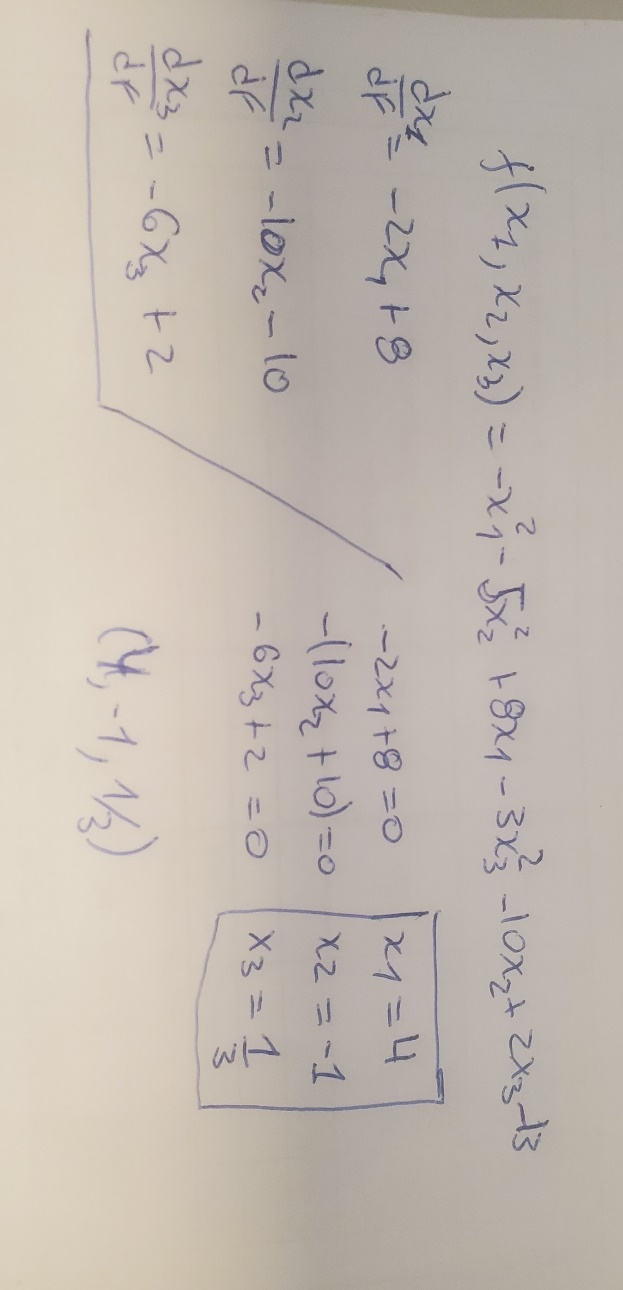 f(x1, x2, x3) = -x1² - 5x2² + 8x1 - 3x3² - 10x2 + 2x3 - 13
dx1/df = -2x1 + 8
dx2/df = -10x2 - 10
dx3/df = -6x3 + 2
-2x1 + 8 = 0
-(10x2 + 10) = 0
-6x3 + 2 = 0
x1 = 4
x2 = -1
x3 = 1/3
(4, -1, 1/3)